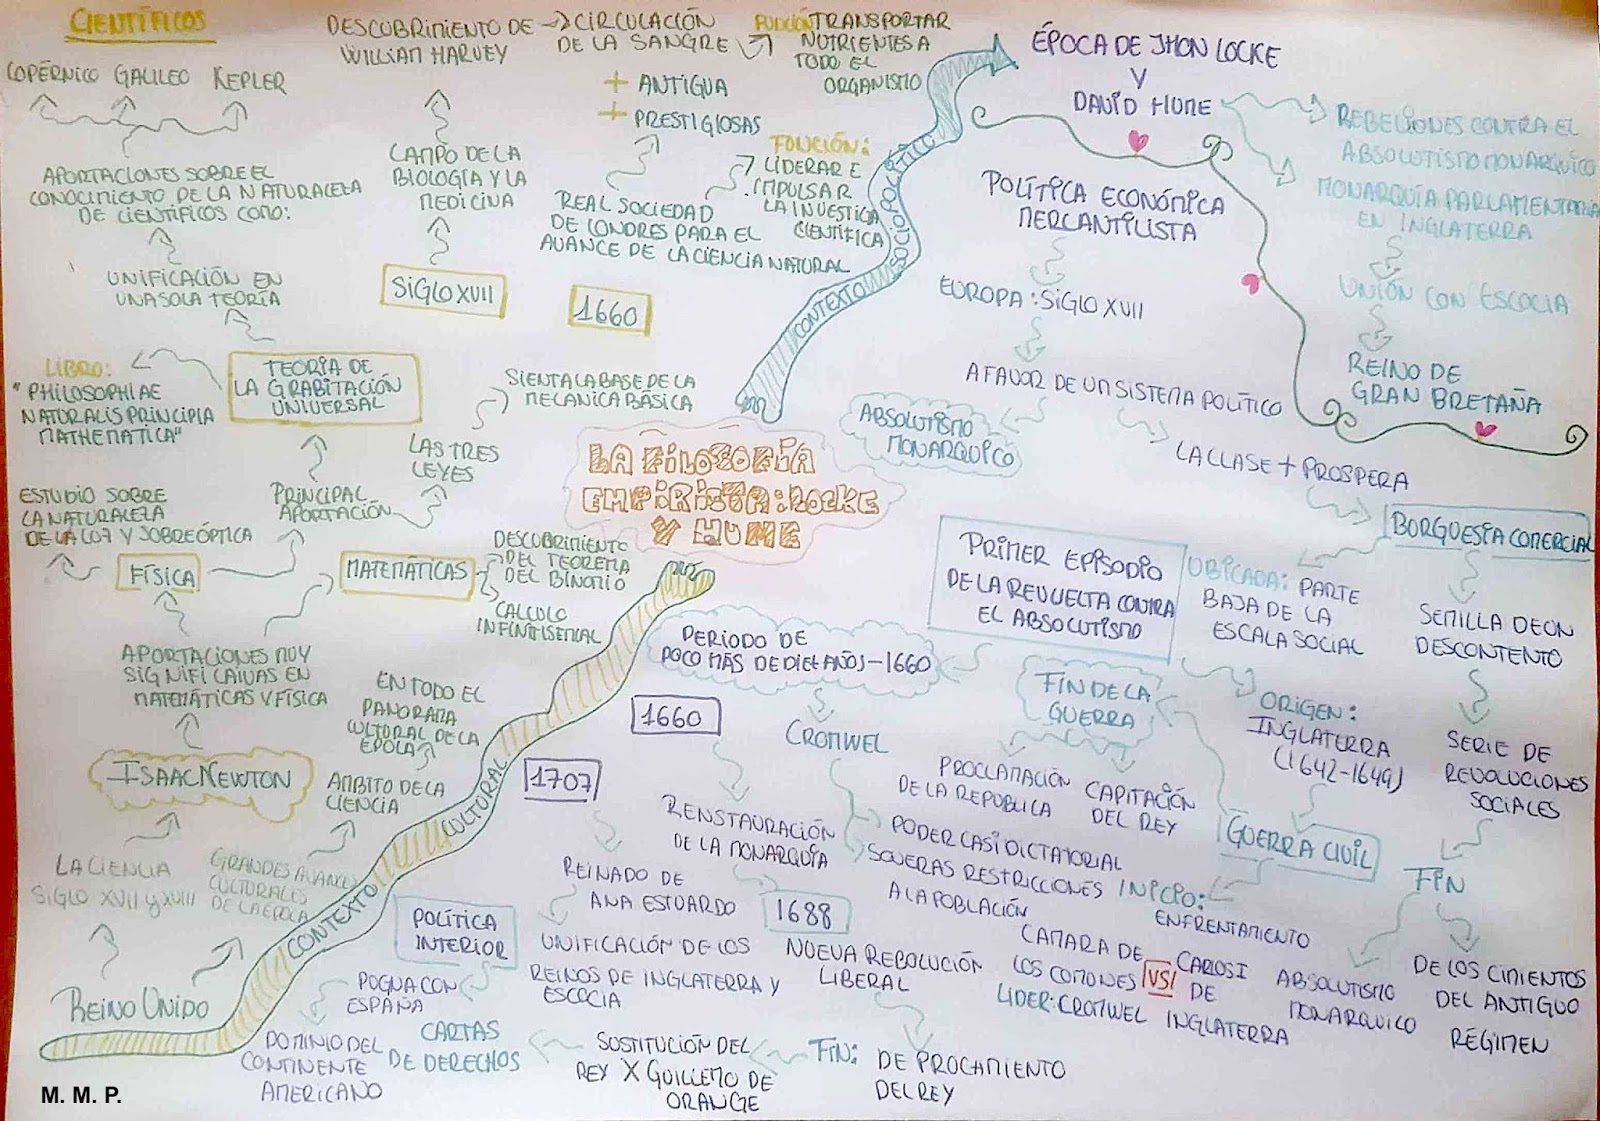 CIENTÍFICOS
COPÉRNICO GALILEO KEPLER
APORTACIONES SOBRE EL
CONOCIMIENTO DE LA NATURALEZA
DE CIENTÍFICOS COMO:
UNIFICACIÓN EN
UNA SOLA TEORÍA
LIBRO:
"PHILOSOPHIAE
NATURALIS PRINCIPIA
MATHEMATICA"
TEORÍA DE
LA GRABITACIÓN
UNIVERSAL
ESTUDIO SOBRE
LA NATURALEZA
DE LA LUZ Y SOBRE ÓPTICA
PRINCIPAL
APORTACIÓN
LAS TRES
LEYES
SIENTA LA BASE DE LA
MECANICA BÁSICA
FÍSICA
MATEMÁTICAS
DESCUBRIMIENTO
DEL TEOREMA
DEL BINOMIO
CALCULO
INFINTISEMIAL
APORTACIONES MUY
SIGNIFICAIVAS EN
MATEMÁTICAS Y FÍSICA
ISAAC NEWTON
EN TODO EL
PANORAMA
CULTURAL DE LA
ÉPOCA
AMBITO DE LA
CIENCIA
LA CIENCIA
SIGLO XVII y XVIII
GRANDES AVANCES
CULTURALES
DE LA ÉPOCA
REINO UNIDO
CONTEXTO CULTURAL
DESCUBRIMIENTO DE
WILLIAN HARVEY
CIRCULACIÓN
DE LA SANGRE
FUNCIÓN TRANSPORTAR
NUTRIENTES A
TODO EL
ORGANISMO
CAMPO DE LA
BIOLOGÍA Y LA
MEDICINA
SIGLO XVII
+ ANTIGUA
+ PRESTIGIOSAS
REAL SOCIEDAD
DE LONDRES PARA EL
AVANCE DE LA CIENCIA NATURAL
FUNCIÓN:
LIDERAR E
IMPULSAR
LA INVESTIGA
CIENTÍFICA
1660
LA FILOSOFÍA
EMPIRISTA: LOCKE
Y HUME
CONTEXTO SOCIOPOLÍTICO
ÉPOCA DE JHON LOCKE
Y
DAVID HUME
REBELIONES CONTRA EL
ABSOLUTISMO MONARQUICO
MONARQUÍA PARLAMENTARIA
EN INGLATERRA
UNIÓN CON ESCOCIA
REINO DE
GRAN BRETAÑA
POLÍTICA ECONÓMICA
MERCANTILISTA
EUROPA: SIGLO XVII
A FAVOR DE UN SISTEMA POLÍTICO
ABSOLUTISMO
MONARQUICO
LA CLASE + PROSPERA
BORGUESIA COMERCIAL
UBICADA: PARTE
BAJA DE LA
ESCALA SOCIAL
SEMILLA DE UN
DESCONTENTO
SERIE DE
REVOLUCIONES
SOCIALES
FIN
ABSOLUTISMO
MONARQUICO
DE LOS CIMIENTOS
DEL ANTIGUO
RÉGIMEN
PRIMER EPISODIO
DE LA REVUELTA CONTRA
EL ABSOLUTISMO
ORIGEN:
INGLATERRA
(1642-1649)
GUERRA CIVIL
INICIO:
ENFRENTAMIENTO
CAMARA DE
LOS COMONES
LIDER: CROMWEL
VS
CARLOS I
DE
INGLATERRA
FIN DE LA
GUERRA
PROCLAMACIÓN
DE LA REPUBLICA
CAPITACIÓN
DEL REY
PERIODO DE
POCO MÁS DE DIEZ AÑOS-1660
CROMWEL
PODER CASI DICTATORIAL
SEVERAS RESTRICCIONES
A LA POBLACIÓN
1660
RENSTAURACIÓN
DE LA MONARQUÍA
1688
NUEVA REBOLUCIÓN
LIBERAL
FIN: DE PROCAMIENTO
DEL REY
SUSTITUCIÓN DEL
REY X GUILLEMO DE
ORANGE
CARTAS
DE DERECHOS
1707
REINADO DE
ANA ESTUARDO
UNIFICACIÓN DE LOS
REINOS DE INGLATERRA Y
ESCOCIA
POLÍTICA
INTERIOR
POGNA CON
ESPAÑA
DOMINIO DEL
CONTINENTE
AMERICANO
M. M. P.